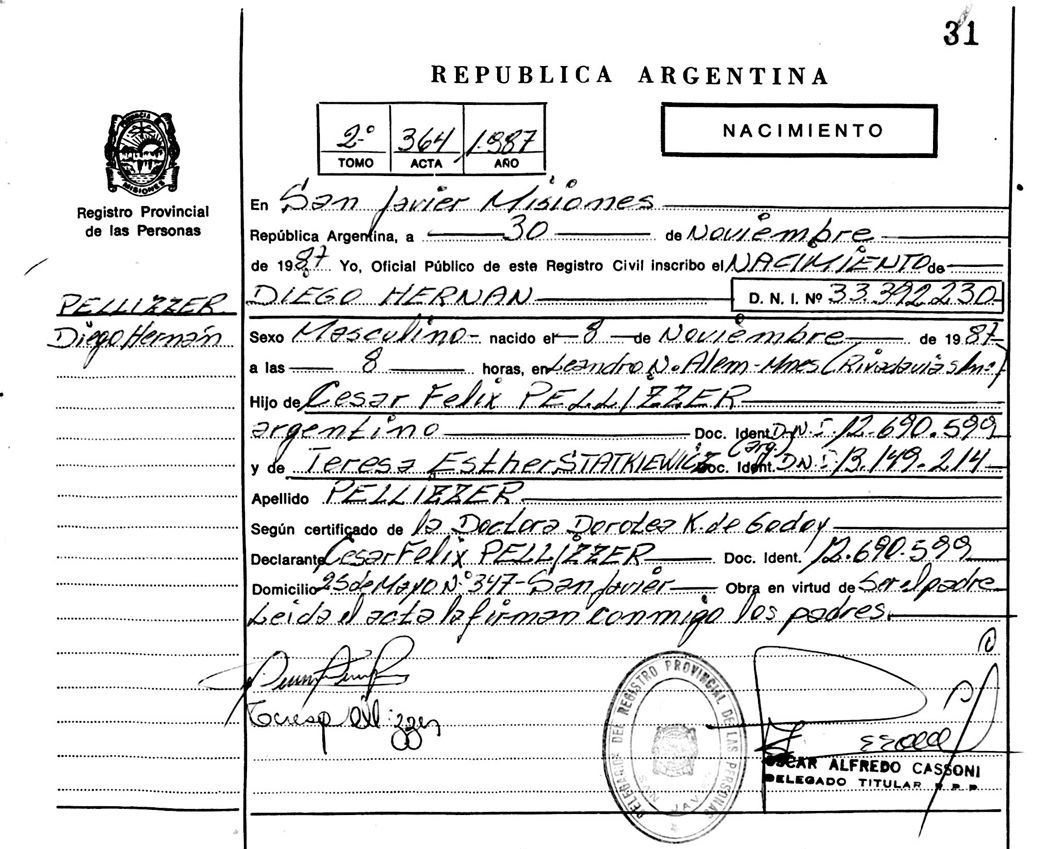 31
REPUBLICA ARGENTINA
2º 364 1.987
TOMO ACTA AÑO
NACIMIENTO
PROVINCIA DE MISIONES
Registro Provincial
de las Personas
PELLIZZER
Diego Hernán
En San Javier Misiones
República Argentina, a 30 de Noviembre
de 1987 Yo, Oficial Público de este Registro Civil inscribo el NACIMIENTO de
DIEGO HERNAN D. N. I. Nº 33.392.230
Sexo Masculino - nacido el 8 de Noviembre de 1987
a las 8 horas, en Leandro N. Alem - Mnes (Rivadavia s/n:)
Hijo de Cesar Felix PELLIZZER
argentino Doc. Ident. D.N.I. 12.690.599
y de Teresa Esther STATKIEWICZ (arg.) Doc. Ident. DN.I 13.149.214
Apellido PELLIZZER
Según certificado de la Doctora Dorotea K. de Godoy
Declarante Cesar Felix PELLIZZER Doc. Ident. 12.690.599
Domicilio 25 de Mayo N.º 347 - San Javier Obra en virtud de Ser el padre
Leida el acta la firman conmigo los padres.
Teresa
DELEGADO DEL REGISTRO PROVINCIAL DE LAS PERSONAS
SAN JAVIER
OSCAR ALFREDO CASSONI
DELEGADO TITULAR R.P.P.